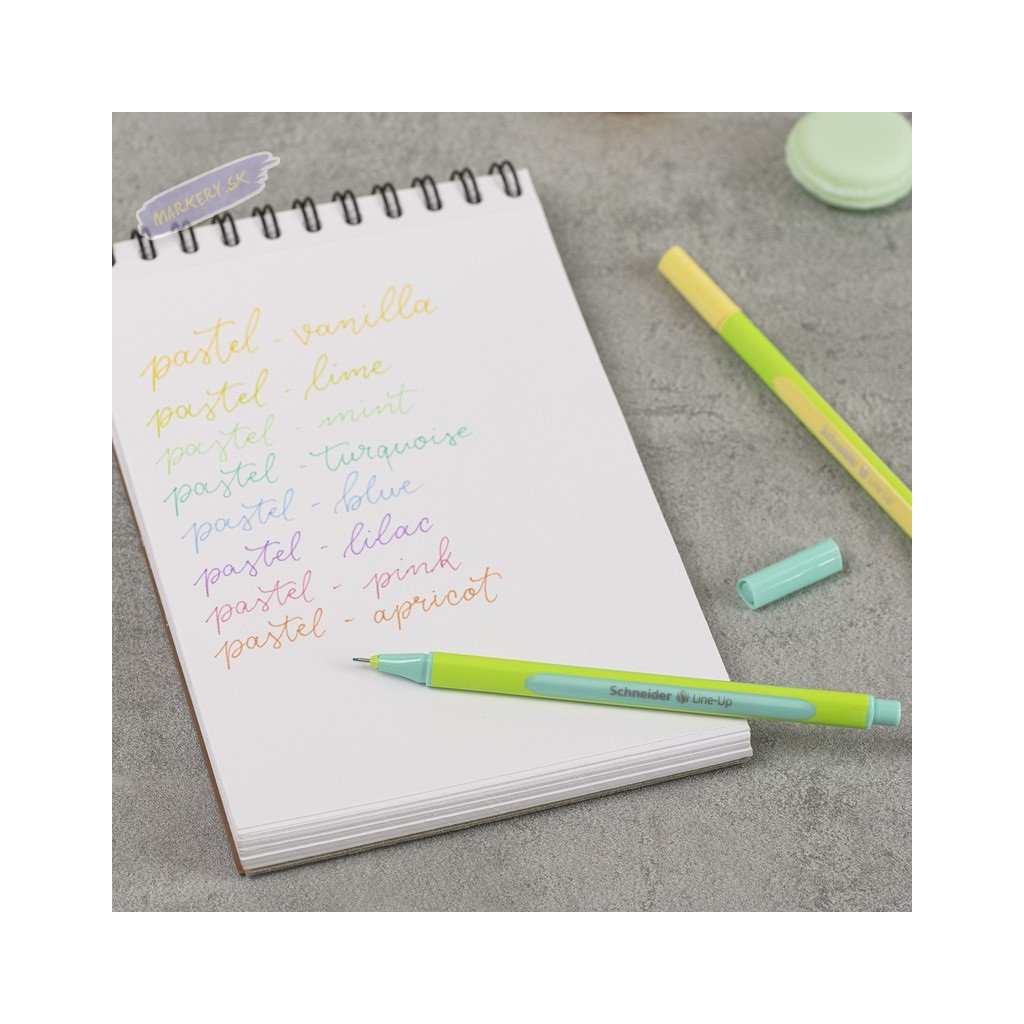 MARKERY.SK
pastel - vanilla
pastel - lime
pastel - mint
pastel - turquoise
pastel - blue
pastel - lilac
pastel - pink
pastel - apricot
Schneider Line-Up
Schneider Line-Up